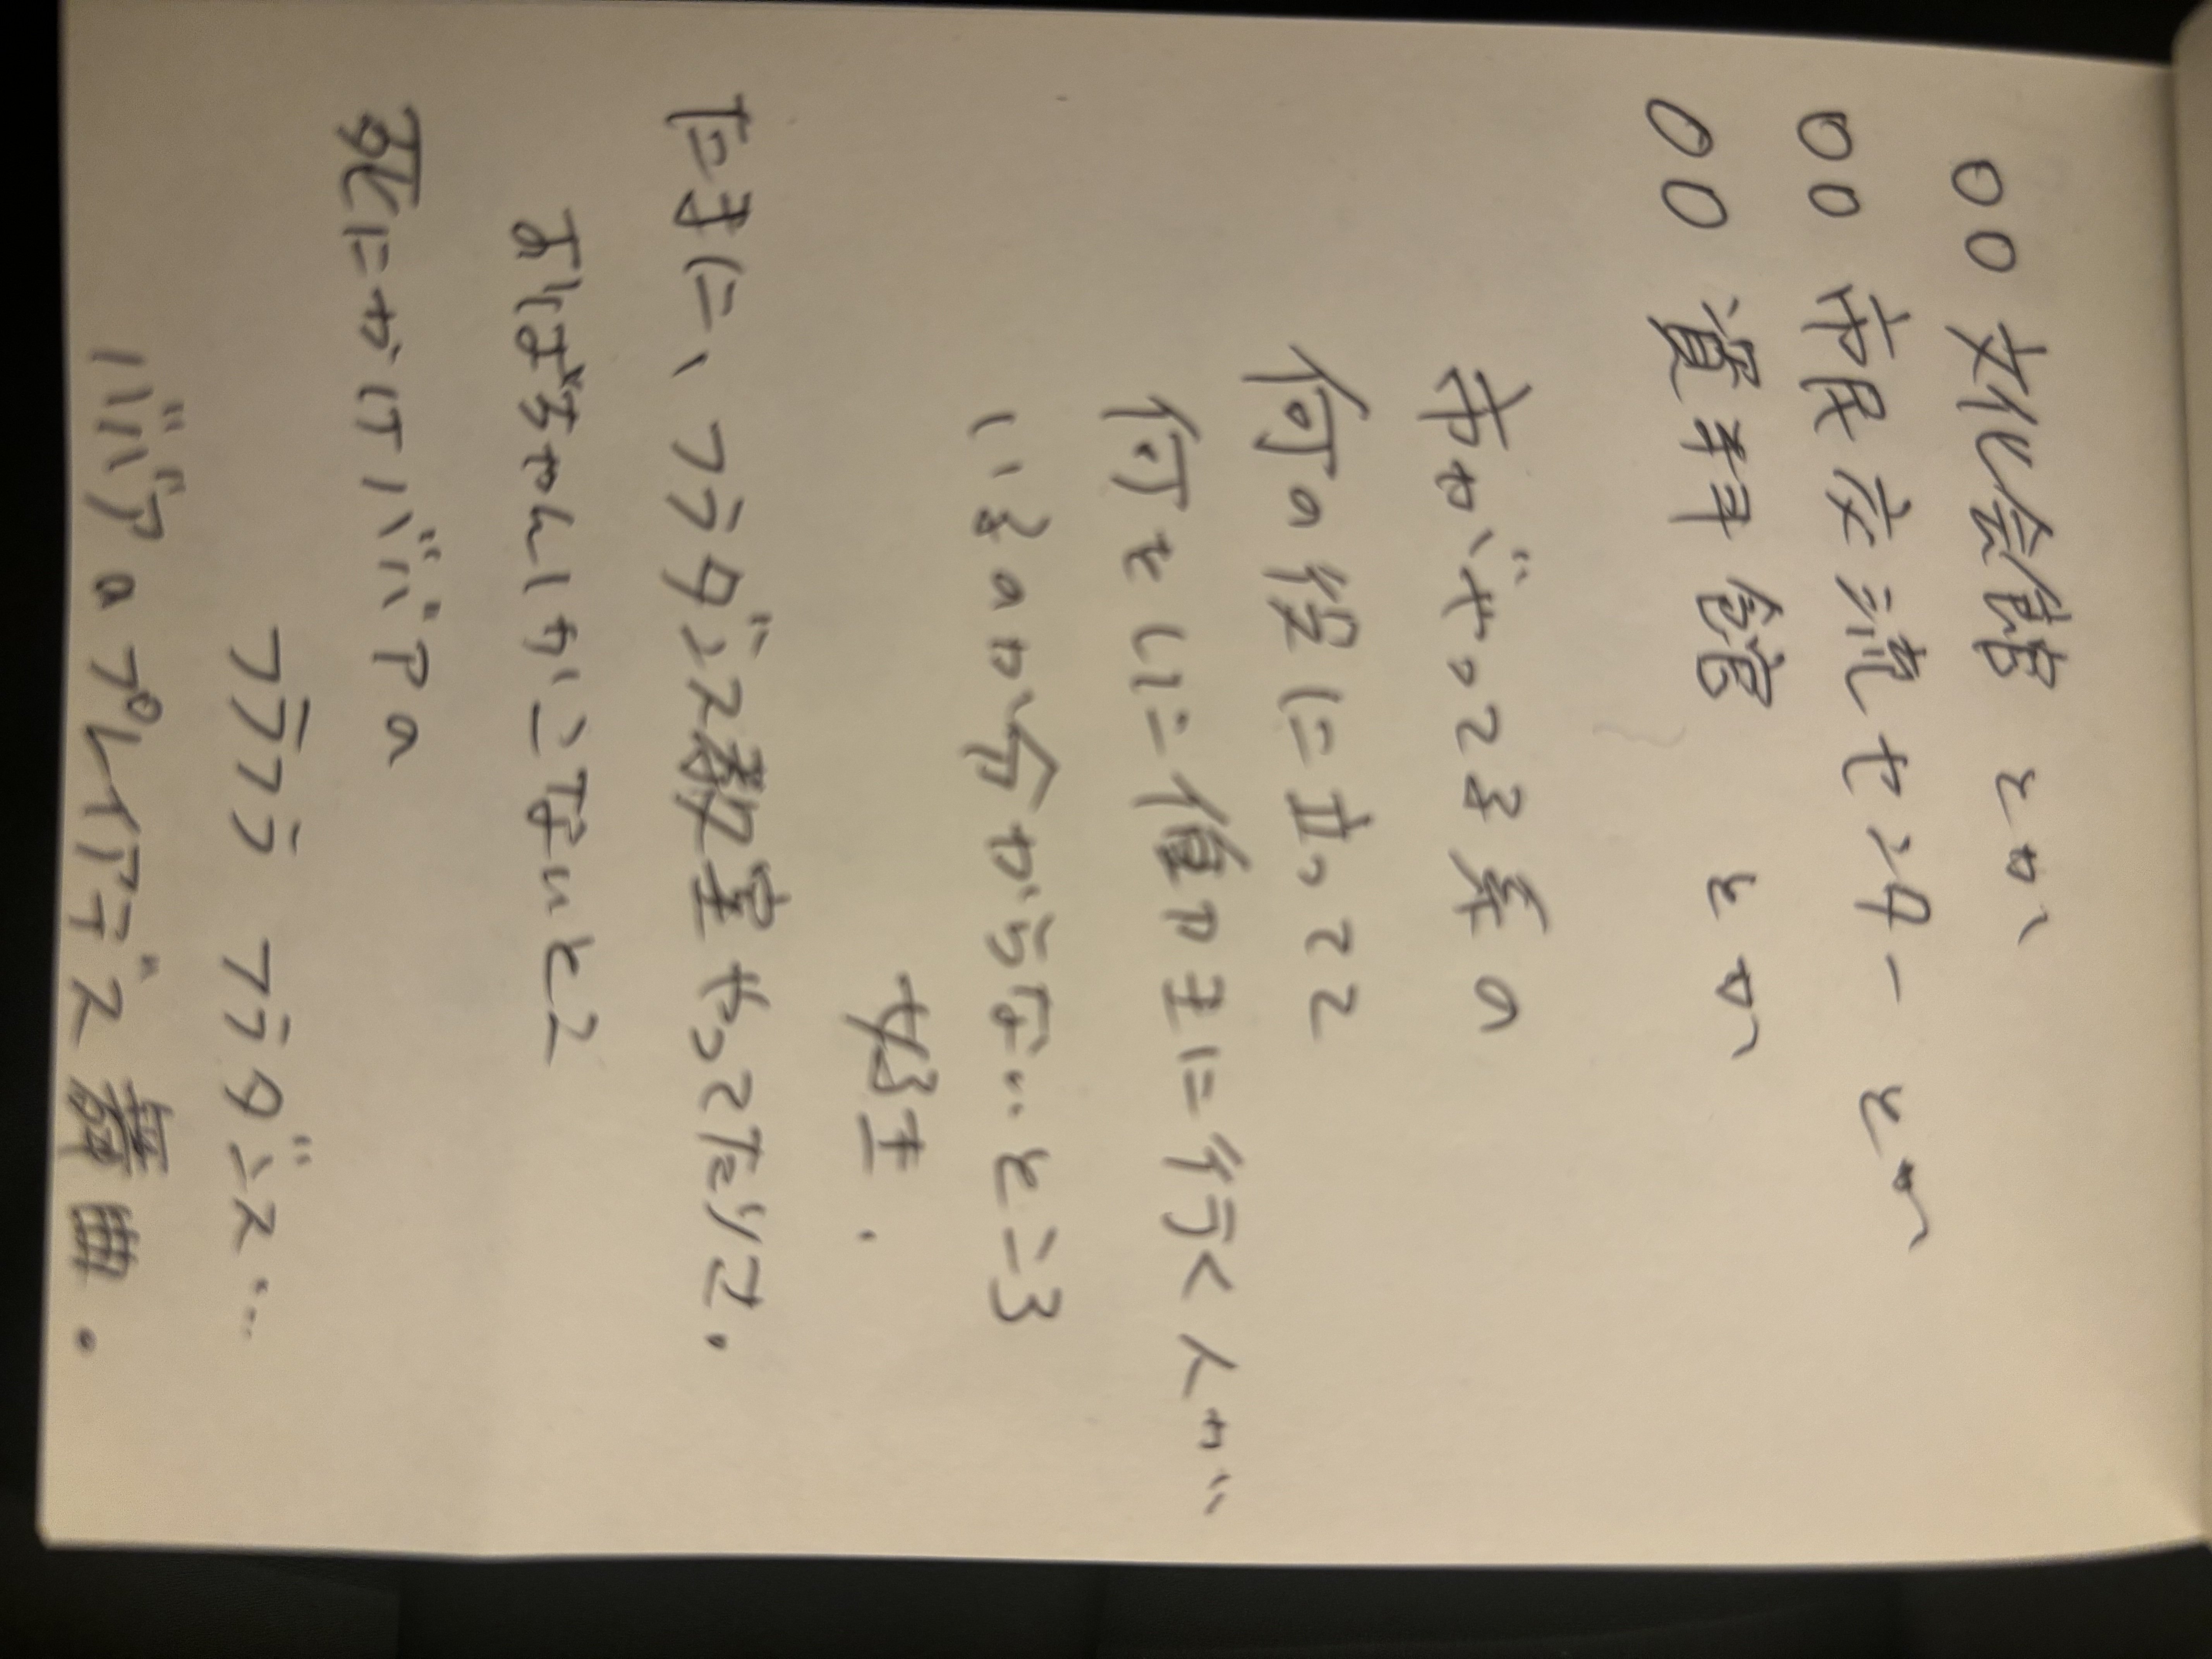 ○○文化会館とか、
○○市民交流センターとか、
○○資料館　とか、
市がやってる系の
何の役に立ってて
何をしに値打ちに行く人が
いるのか分からないところ
好き.
たまに、フラダンス教室やってたりね.
おばちゃんしかこないとこ
死にかけババアの
フラフラ フラダンス…
ババアのプレイアデス舞曲.